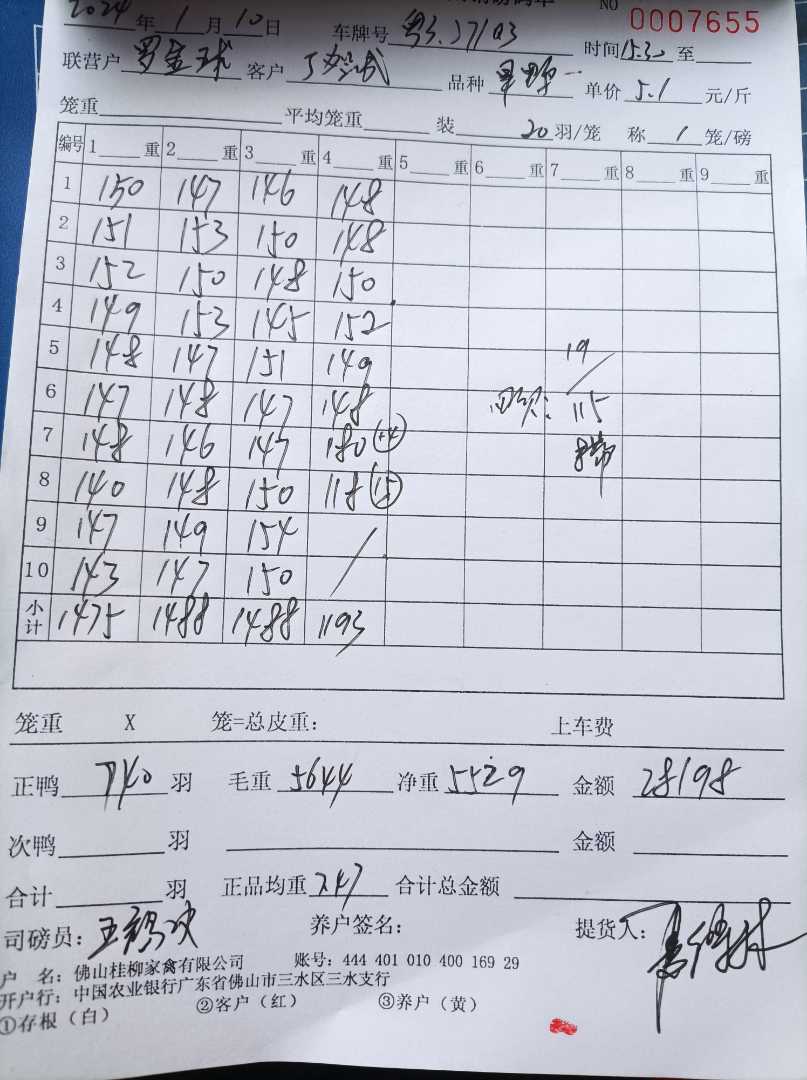 NO 0007655
2024年1月10日 车牌号 时间15:30至
联营户 罗金球 客户 品种 单价 5.1 元/斤
笼重 平均笼重 装 20 羽/笼 称 1 笼/磅
编号 1 重 2 重 3 重 4 重 5 重 6 重 7 重 8 重 9 重
1 150 147 146 148
2 151 153 150 148
3 152 150 148 150
4 149 153 145 152
5 148 147 151 149 19/
6 147 148 147 148 115
7 148 146 147 180 (+4)
8 140 148 150 118 (15)
9 147 149 154 /
10 143 147 150
小计 1475 1488 1488 1193
笼重 X 笼=总皮重: 上车费
正鸭 740 羽 毛重 5644 净重 5529 金额 28198
次鸭 羽 金额
合计 羽 正品均重 7.47 合计总金额
司磅员: 养户签名: 提货人:
户 名: 佛山桂柳家禽有限公司 账号: 444 401 010 400 169 29
开户行: 中国农业银行广东省佛山市三水区三水支行
①存根(白) ②客户(红) ③养户(黄)